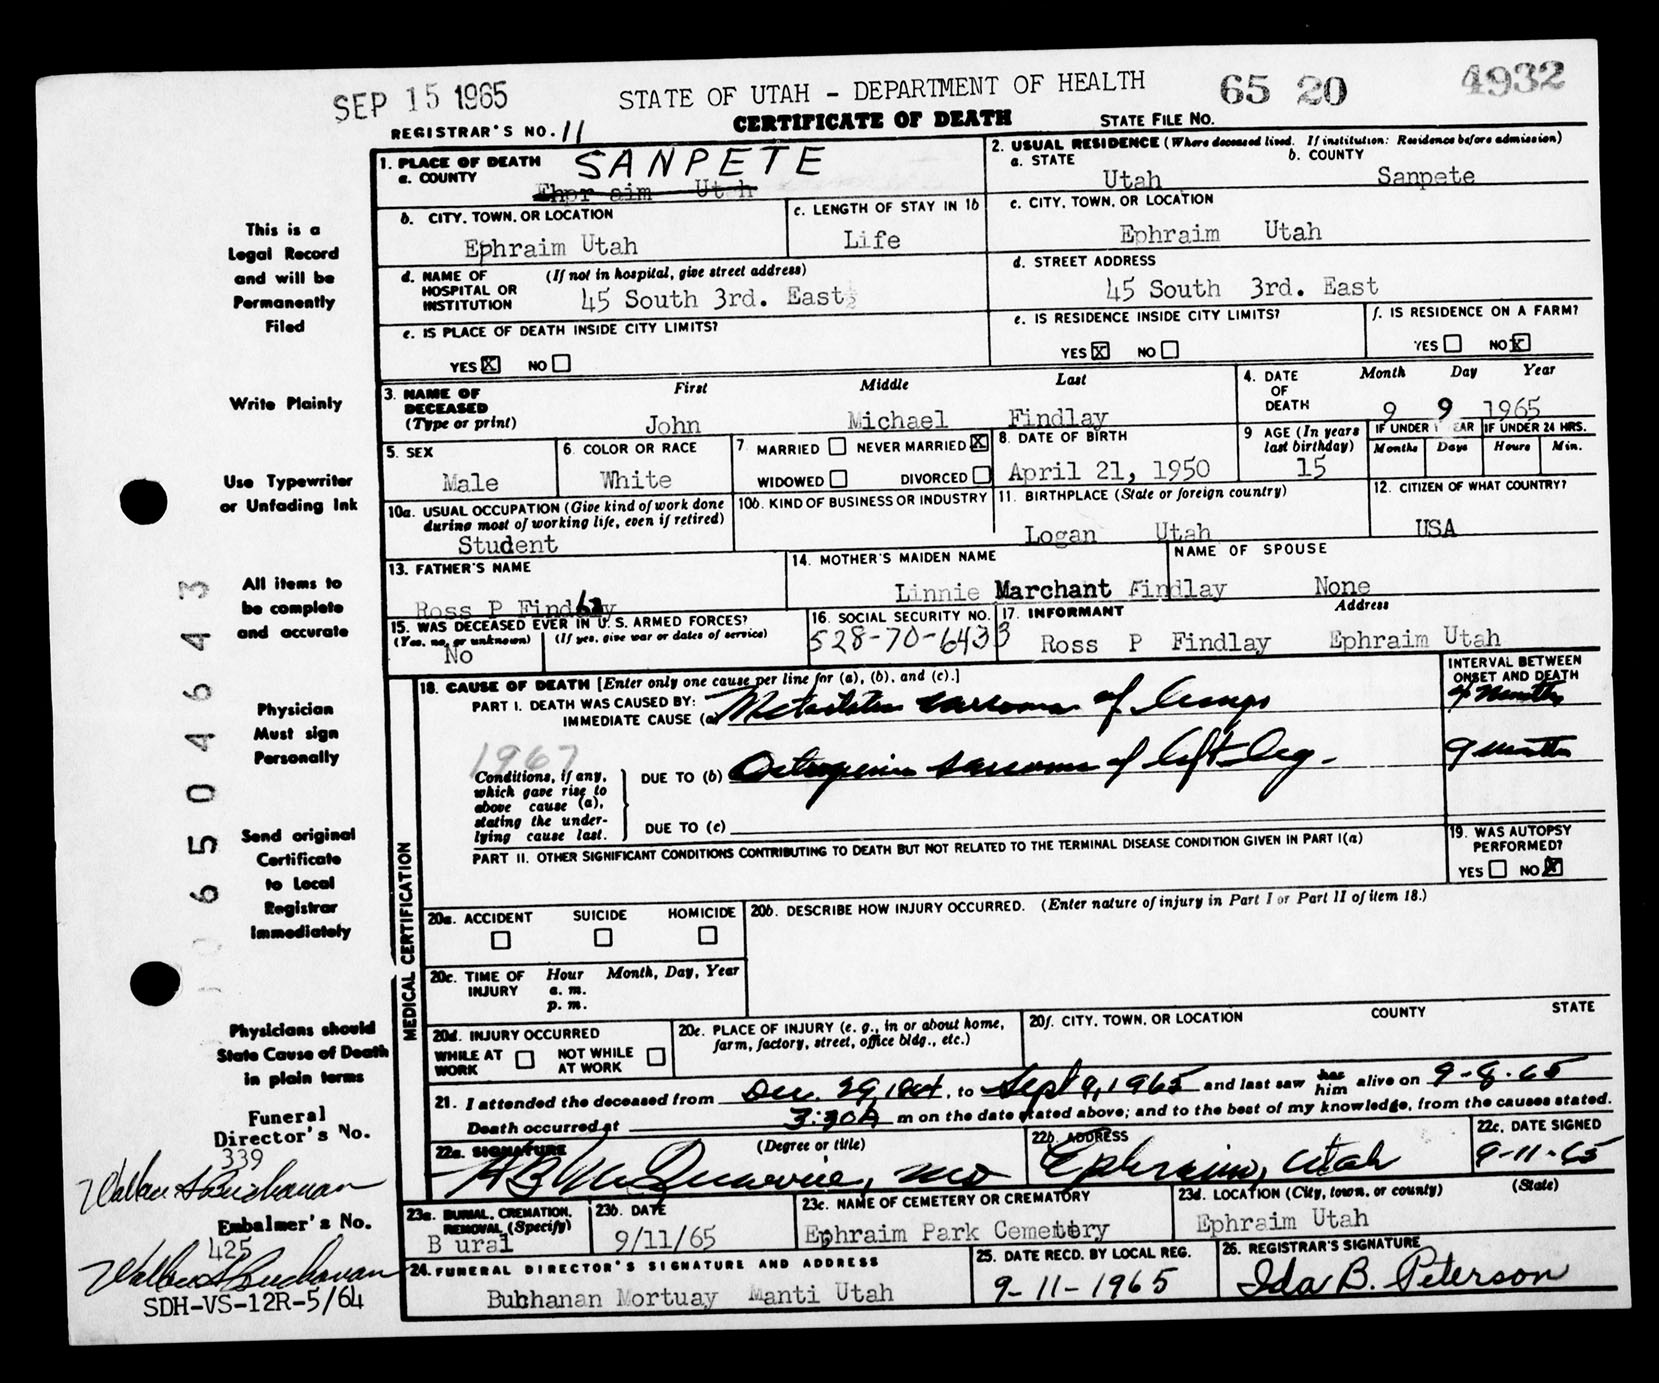 SEP 15 1965
STATE OF UTAH - DEPARTMENT OF HEALTH
65 20
4932
REGISTRAR'S NO. 11
CERTIFICATE OF DEATH
STATE FILE NO.
1. PLACE OF DEATH
a. COUNTY
SANPETE
Ehpr aim Ut h
2. USUAL RESIDENCE (Where deceased lived. If institution: Residence before admission)
a. STATE
b. COUNTY
Utah Sanpete
b. CITY, TOWN, OR LOCATION
Ephraim Utah
c. LENGTH OF STAY IN 1b
Life
c. CITY, TOWN, OR LOCATION
Ephraim Utah
d. NAME OF HOSPITAL OR INSTITUTION
(If not in hospital, give street address)
45 South 3rd. East
d. STREET ADDRESS
45 South 3rd. East
e. IS PLACE OF DEATH INSIDE CITY LIMITS?
YES X NO
e. IS RESIDENCE INSIDE CITY LIMITS?
YES X NO
f. IS RESIDENCE ON A FARM?
YES NO X
3. NAME OF DECEASED
(Type or print)
First Middle Last
John Michael Findlay
4. DATE OF DEATH
Month Day Year
9 9 1965
5. SEX
Male
6. COLOR OR RACE
White
7. MARRIED NEVER MARRIED X
WIDOWED DIVORCED
8. DATE OF BIRTH
April 21, 1950
9 AGE (In years last birthday)
15
IF UNDER 1 EAR
Months Days
IF UNDER 24 HRS.
Hours Min.
10a. USUAL OCCUPATION (Give kind of work done during most of working life, even if retired)
Student
10b. KIND OF BUSINESS OR INDUSTRY
11. BIRTHPLACE (State or foreign country)
Logan Utah
12. CITIZEN OF WHAT COUNTRY?
USA
13. FATHER'S NAME
Ross P Findlay
14. MOTHER'S MAIDEN NAME
Linnie Marchant Findlay
NAME OF SPOUSE
None
15. WAS DECEASED EVER IN U. S. ARMED FORCES?
(Yes, no, or unknown) (If yes, give war or dates of service)
No
16. SOCIAL SECURITY NO.
528-70-6433
17. INFORMANT
Address
Ross P Findlay Ephraim Utah
MEDICAL CERTIFICATION
18. CAUSE OF DEATH [Enter only one cause per line for (a), (b), and (c).]
INTERVAL BETWEEN ONSET AND DEATH
PART I. DEATH WAS CAUSED BY:
IMMEDIATE CAUSE (a) sarcoma of lungs
months
1967
Conditions, if any, which gave rise to above cause (a), stating the underlying cause last.
DUE TO (b) sarcoma of left leg.
9 months
DUE TO (c)
PART II. OTHER SIGNIFICANT CONDITIONS CONTRIBUTING TO DEATH BUT NOT RELATED TO THE TERMINAL DISEASE CONDITION GIVEN IN PART I(a)
19. WAS AUTOPSY PERFORMED?
YES NO X
20a. ACCIDENT SUICIDE HOMICIDE
20b. DESCRIBE HOW INJURY OCCURRED. (Enter nature of injury in Part I or Part II of item 18.)
20c. TIME OF INJURY
Hour Month, Day, Year
a. m.
p. m.
20d. INJURY OCCURRED
WHILE AT WORK NOT WHILE AT WORK
20e. PLACE OF INJURY (e. g., in or about home, farm, factory, street, office bldg., etc.)
20f. CITY, TOWN, OR LOCATION COUNTY STATE
21. I attended the deceased from Dec. 29, 1964, to Sept 9, 1965 and last saw her him alive on 9-8-65
Death occurred at 3:30A m on the date stated above; and to the best of my knowledge, from the causes stated.
22a. SIGNATURE
(Degree or title)
MD
22b. ADDRESS
Ephraim, Utah
22c. DATE SIGNED
9-11-65
23a. BURIAL, CREMATION, REMOVAL (Specify)
B ural
23b. DATE
9/11/65
23c. NAME OF CEMETERY OR CREMATORY
Ephraim Park Cemetery
23d. LOCATION (City, town, or county) (State)
Ephraim Utah
24. FUNERAL DIRECTOR'S SIGNATURE AND ADDRESS
Buchanan Mortuay Manti Utah
25. DATE RECD. BY LOCAL REG.
9-11-1965
26. REGISTRAR'S SIGNATURE
Ida B. Peterson
This is a
Legal Record
and will be
Permanently
Filed
Write Plainly
Use Typewriter
or Unfading Ink
All items to
be complete
and accurate
Physician
Must sign
Personally
Send original
Certificate
to Local
Registrar
Immediately
Physicians should
State Cause of Death
in plain terms
Funeral
Director's No.
339
Wallace S Buchanan
Embalmer's No.
425
Wallace S Buchanan
SDH-VS-12R-5/64
0 6504643